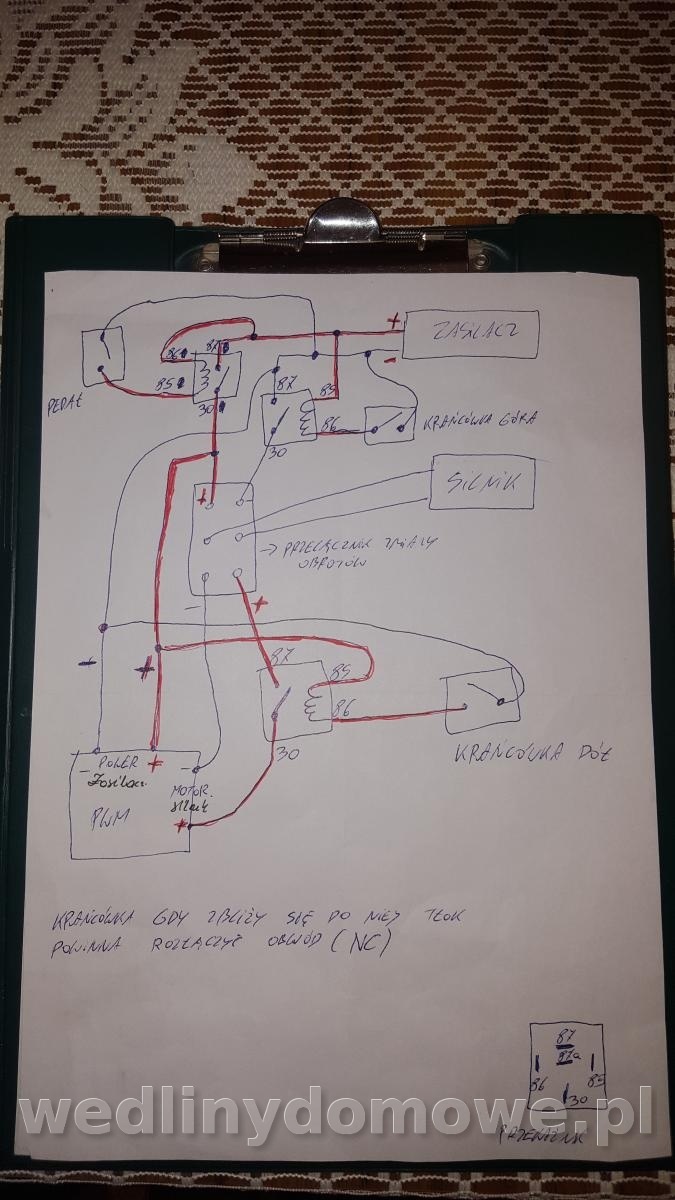 ZASILACZ
+
-
86
87
85
30
PEDAŁ
87
85
86
30
KRAŃCÓWKA GÓRA
SILNIK
+
→ PRZEŁĄCZNIK ZMIANY
OBROTÓW
-
+
87
85
86
30
KRAŃCÓWKA DÓŁ
-
+
- POWER +
Zasilacz
PWM
MOTOR -
silnik
+
KRAŃCÓWKA GDY ZBLIŻY SIĘ DO NIEJ TŁOK
POWINNA ROZŁĄCZYĆ OBWÓD (NC)
87
87a
86
85
30
PRZEKAŹNIK
wedlinydomowe.pl